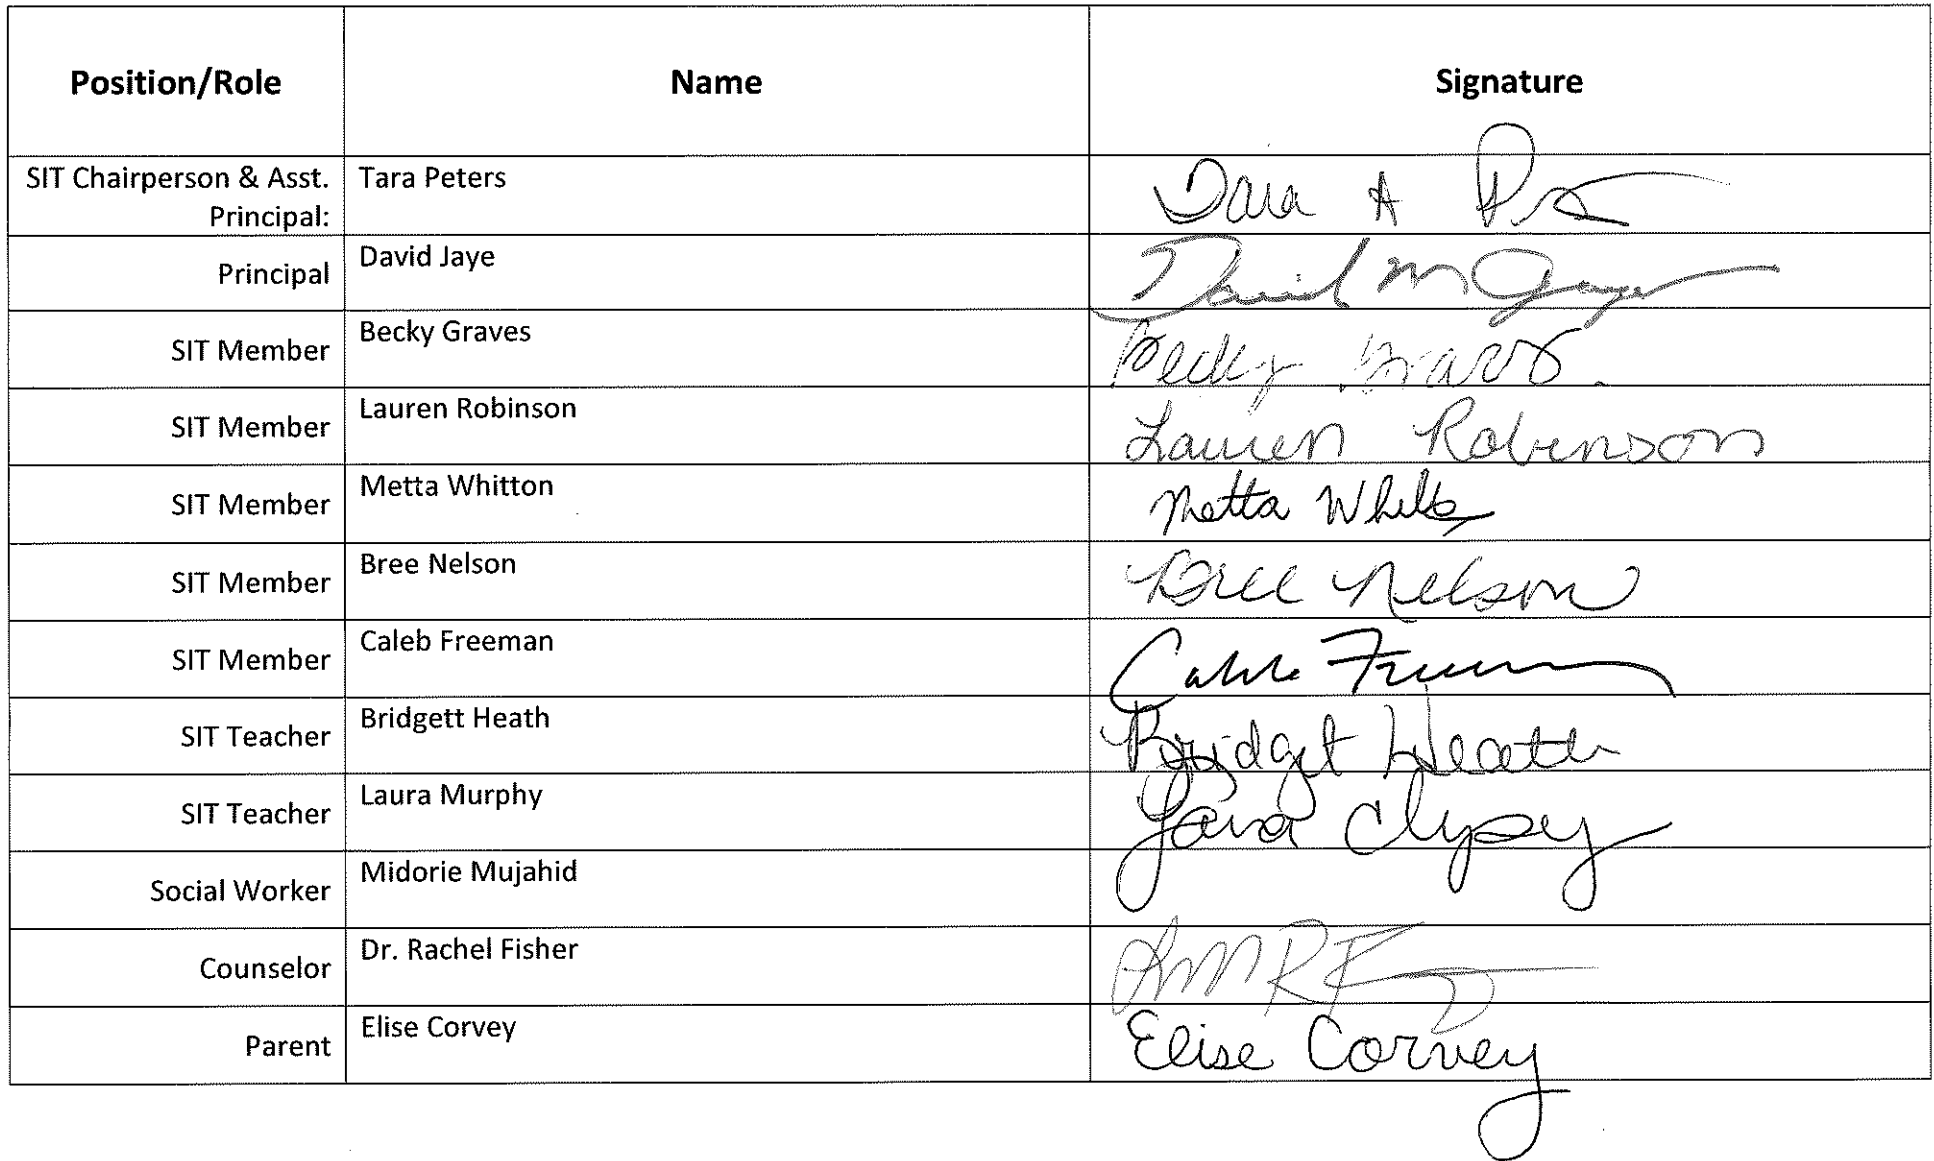 Position/Role Name Signature
SIT Chairperson & Asst. Principal: Tara Peters Tara A P
Principal David Jaye David M Jaye
SIT Member Becky Graves Becky Graves
SIT Member Lauren Robinson Lauren Robinson
SIT Member Metta Whitton Metta Whitt
SIT Member Bree Nelson Bree Nelson
SIT Member Caleb Freeman Caleb Freeman
SIT Teacher Bridgett Heath Bridget Heath
SIT Teacher Laura Murphy
Social Worker Midorie Mujahid
Counselor Dr. Rachel Fisher
Parent Elise Corvey Elise Corvey